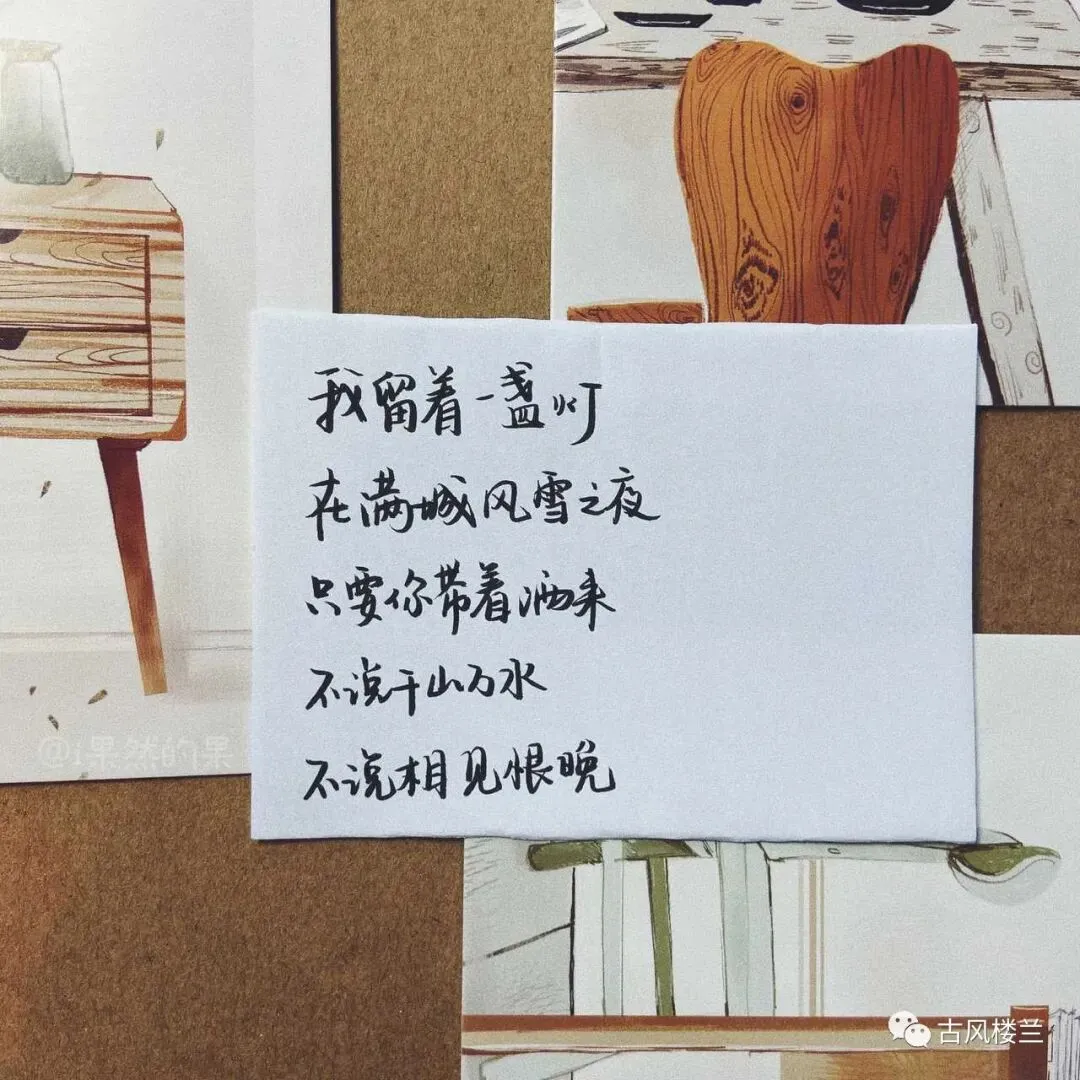 我留着一盏灯
在满城风雪之夜
只要你带着酒来
不说千山万水
不说相见恨晚
@i果然的果
古风楼兰